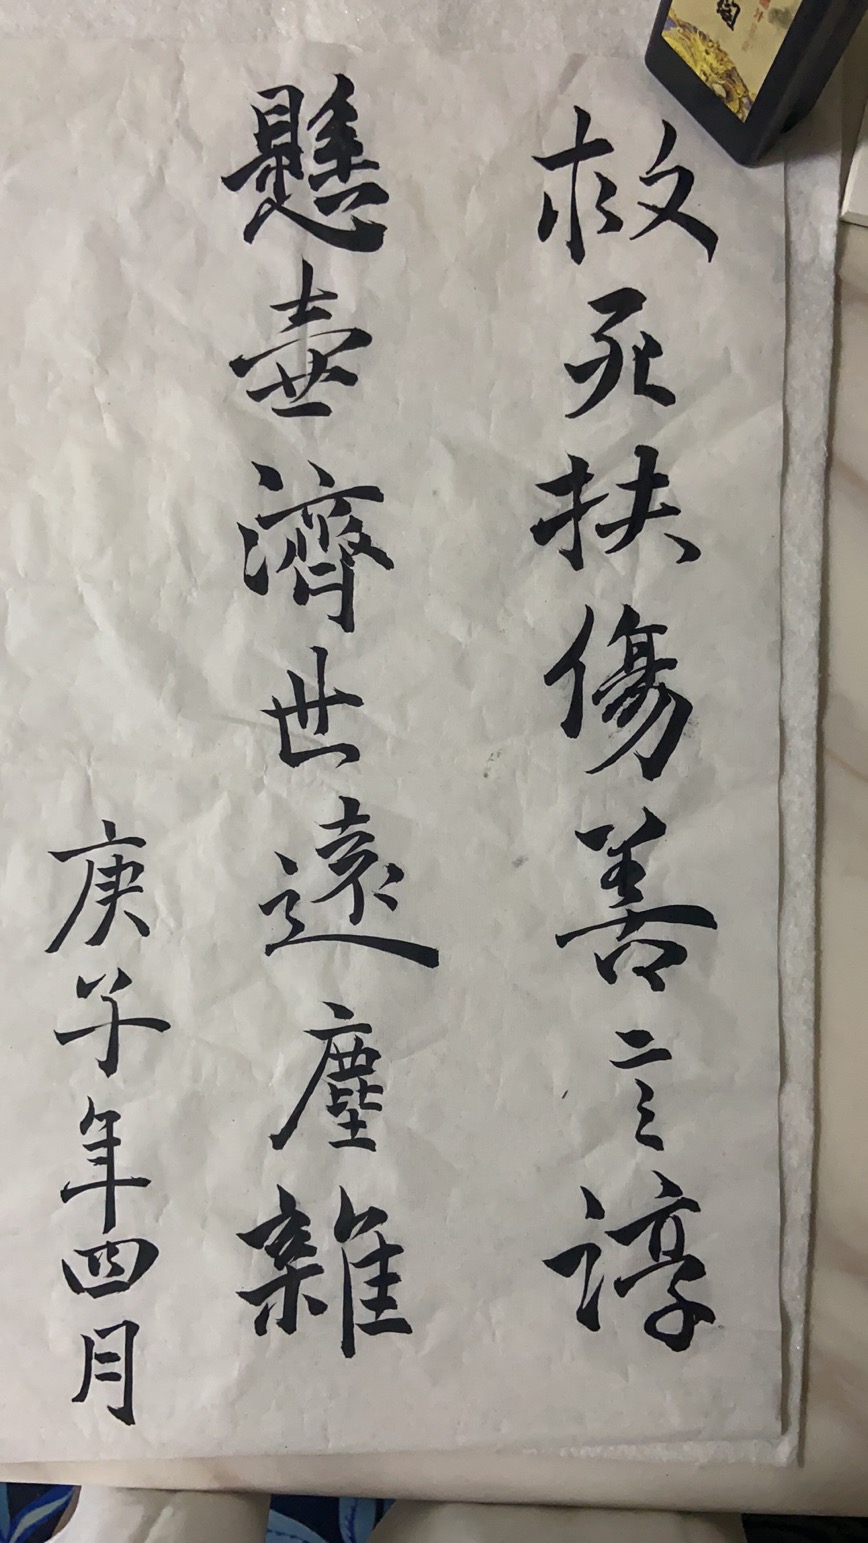 救死扶傷善言諄
懸壺濟世遠塵雜
庚子年四月